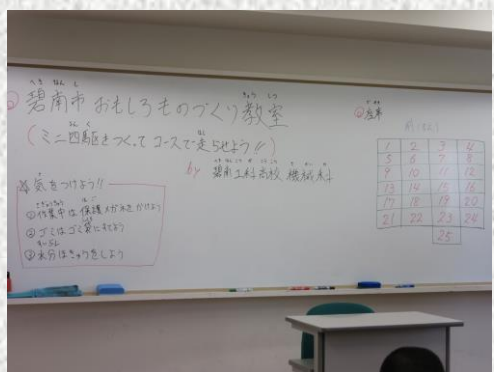 碧南市 おもしろものづくり教室
(ミニ四駆をつくって コースで走らせよう!!)
by 碧南工科高校 機械科
気をつけよう!!
①作業中は保護メガネをかけよう
②ゴミはゴミ袋にすてよう
③水分はきゅうをしよう
座席
1 2 3 4
5 6 7 8
9 10 11 12
13 14 15 16
17 18 19 20
21 22 23 24
25